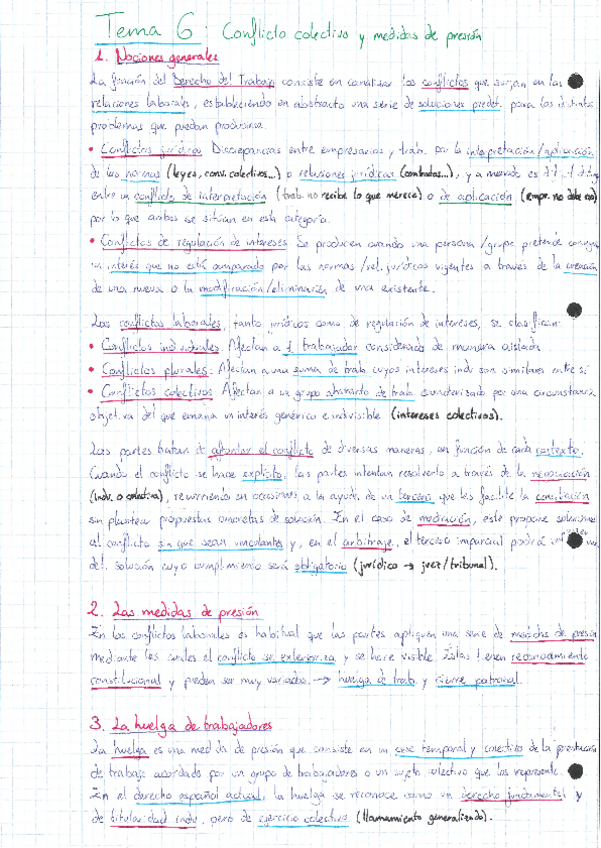 Tema 6: Conflicto colectivo y medidas de presión
1. Nociones generales
La función del Derecho del Trabajo consiste en canalizar los conflictos que surjan en las
relaciones laborales, estableciendo en abstracto una serie de soluciones predet. para los distintos
problemas que puedan producirse.
• Conflictos jurídicos: Discrepancias entre empresarios y trab. por la interpretación/aplicación
de las normas (leyes, conv. colectivos...) o relaciones jurídicas (contratos...), y a menudo es difícil
entre un conflicto de interpretación (trab. no recibe lo que merece) o de aplicación (empr. no debe
por lo que ambos se sitúan en esta categoría.
• Conflictos de regulación de intereses: Se producen cuando una persona/grupo pretende
un interés que no está amparado por las normas/rel. jurídicas vigentes a través de la creación
de una nueva o la modificación/eliminación de una existente.
Los conflictos laborales, tanto jurídicos como de regulación de intereses, se clasifican:
• Conflictos individuales: Afectan a 1 trabajador considerado de manera aislada.
• Conflictos plurales: Afectan a una suma de trab. cuyos intereses indv. son similares entre sí.
• Conflictos colectivos: Afectan a un grupo abstracto de trab. caracterizado por una circunstancia
objetiva del que emana un interés genérico e indivisible (intereses colectivos).
Las partes tratan de afrontar el conflicto de diversas maneras, en función de cada contexto.
Cuando el conflicto se hace explícito, las partes intentan resolverlo a través de la negociación
(indv. o colectiva), recurriendo en ocasiones a la ayuda de un tercero que les facilite la conciliación
sin plantear propuestas concretas de solución. En el caso de mediación, este propone soluciones
al conflicto sin que sean vinculantes y, en el arbitraje, el tercero imparcial podrá
del. solución cuyo cumplimiento será obligatorio (jurídico → juez/tribunal).
2. Las medidas de presión
En los conflictos laborales es habitual que las partes apliquen una serie de medidas de presión
mediante las cuales el conflicto se exterioriza y se hace visible. Éstas tienen reconocimiento
constitucional y pueden ser muy variadas → huelga de trab. y cierre patronal.
3. La huelga de trabajadores
La huelga es una medida de presión que consiste en un cese temporal y colectivo de la prestación
de trabajo acordado por un grupo de trabajadores o un sujeto colectivo que los represente.
En el derecho español actual, la huelga se reconoce como un derecho fundamental y
de titularidad indv. pero de ejercicio colectivo (llamamiento generalizado).